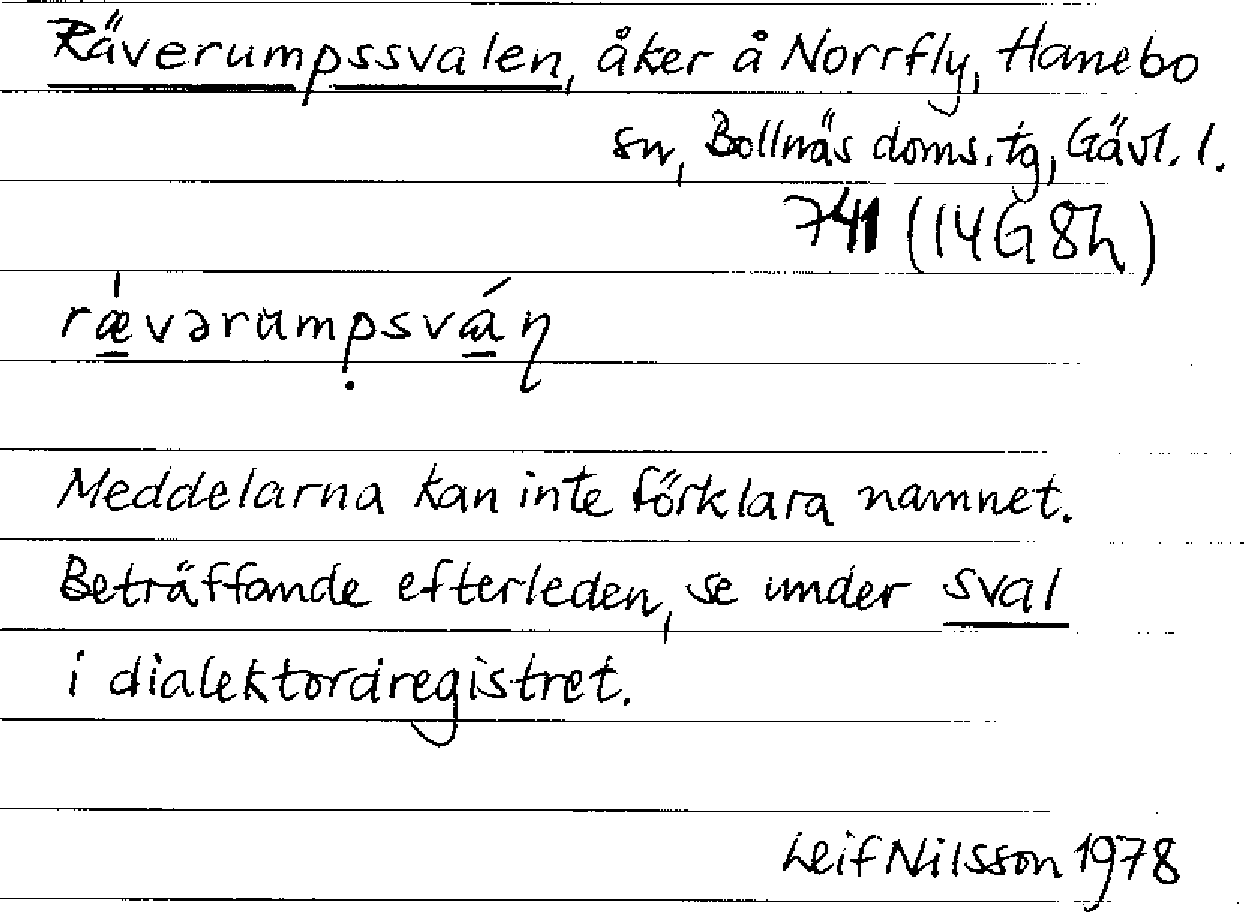 Räverumpssvalen, åker å Norrfly, Hanebo
sn, Bollnäs doms.tg, Gävl. l.
741 (14G8h)
rǽvərumpsván
Meddelarna kan inte förklara namnet.
Beträffande efterleden, se under sval
i dialektordregistret.
Leif Nilsson 1978